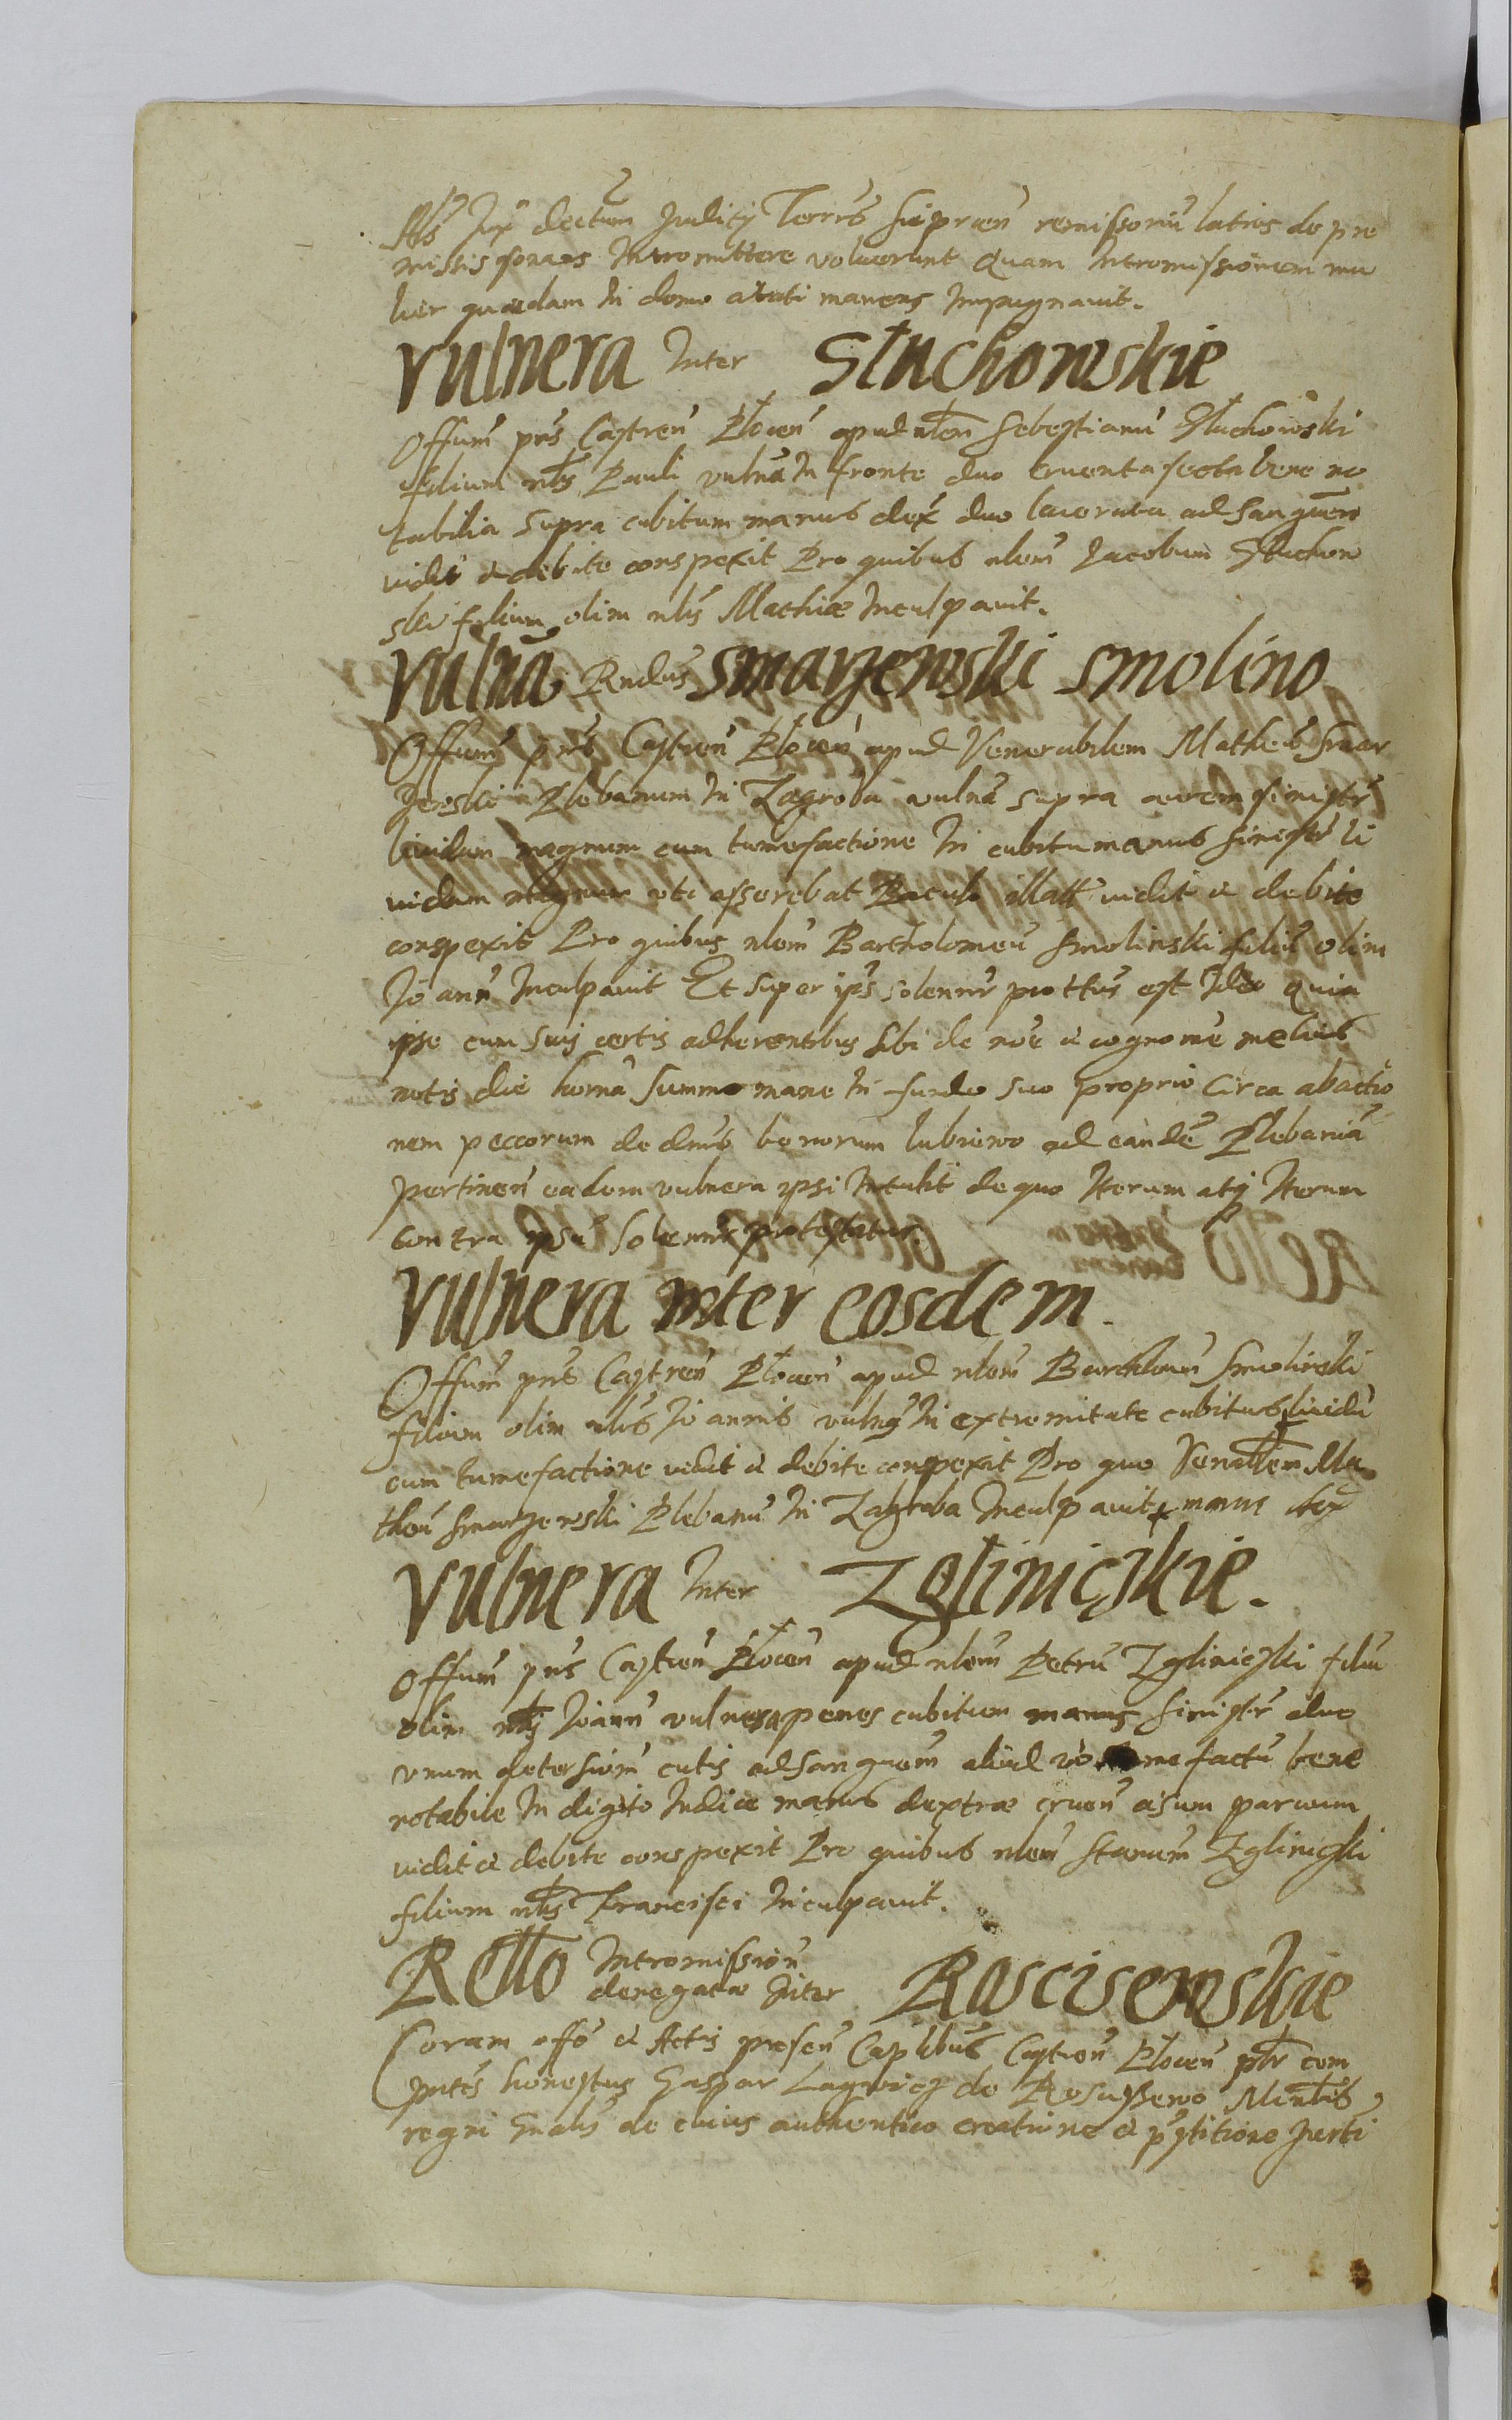 Abs Jux dectum Judicij Terrs Sieprcen remissoriu latius de pre
missis sonans Intromittere voluerunt Quam Intromissionem mu
lier quaedam in domo manens Impugnavit.
Vulnera Inter Słuchowskie
Offum pns Castren Płocen apud nlem Sebestianu Słuchowski
filium nlis Pauli vulna In fronte duo cruenta secta bene no
tabilia supra cubitum manus dex duo lacerata ad sanguem
vidit et debite conspexit Pro quibus nlem Jacobum Słuchow
ski filium olim nlis Mathiæ Inculpavit.
Vulna Rndus Smarzewski Smolino
Offium pns Castren Płocen apud Venerabilem Matheu Smar
zewski Plebanum In Zagroba vulna supra aurem sinistr
lividum magnum cum tumefactione In cubitu manus sinistr li
vidum magnum uti asserebat Baculo illatt vidit et debite
conspexit Pro quibus nlem Bartholomeu Smolinski filiu olim
Joann Inculpavit Et super ips solennr prottus est Ideo Quia
ipse cum suis certis adherentibus sibi de noe et cognome melius
notis die horna summo mane In fundo suo proprio Circa abactio
nem peccorum de dmis bonorum Lubiewo ad eandē Plebaniā
pertinen eadem vulnera ipsi Intulit de quo Iterum atq Iterum
contra ipsū solennr protestatur.
Vulnera inter eosdem.
Offum pns Castren Płocen apud nlem Barthlomeu Smolinski
filium olim nlis Joannis vulnus In extremitate cubitus lividū
cum tumefactione vidit et debite conspexit Pro quo Venablem Ma
theū Smarzewski Plebanū In Zagroba Inculpavit + manus dex
Vulnera Inter Zgliniczkie.
Offum pns Castren Płocen apud nlem Petrū Zgliniczki filiū
olim nlis Joann vulnera penes cubitum manus sinistr duo
vnum detersiom cutis ad sanguem aliud vo tumefactū bene
notabile In digito Indice manus dextræ cruen cæsum parvum
vidit et debite conspexit Pro quibus nlem Stanem Zgliniczki
filium nlis Francisci Inculpavit.
Rello Intromission
denegatæ Inter Rosciszewskie
Coram offo et Actis presen Caplibus Castren Płocen plr com
prns honestus Gaspar Lagwicz de Rosussewo Minlis
regni Gnalis de cuius authentico creatione et pstitione Iuerti